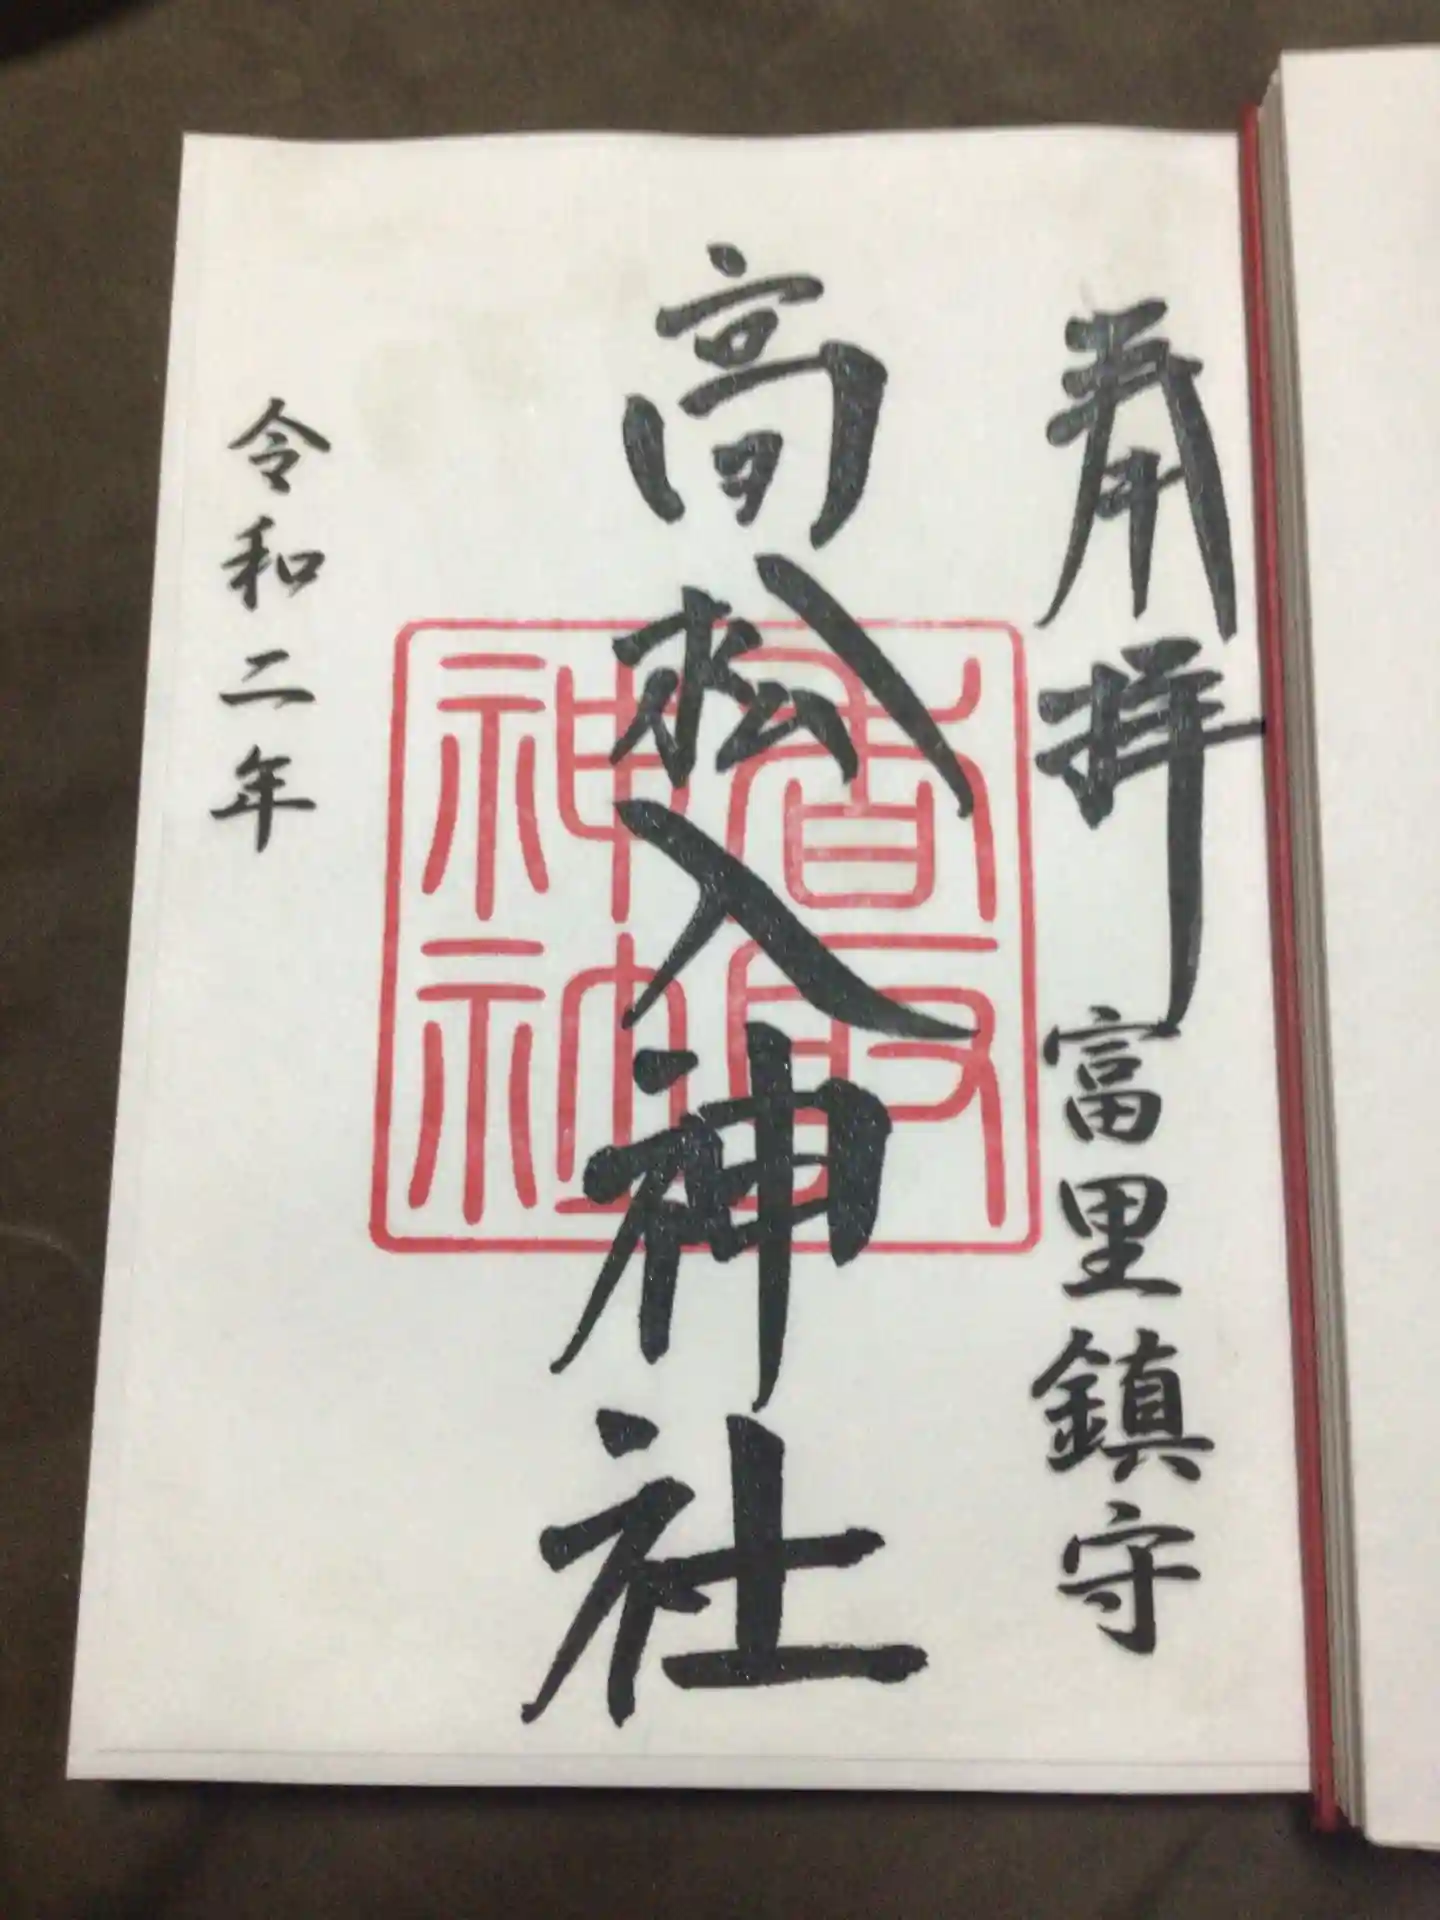 奉拝
富里鎮守
高松入神社
香取
神社
令和二年